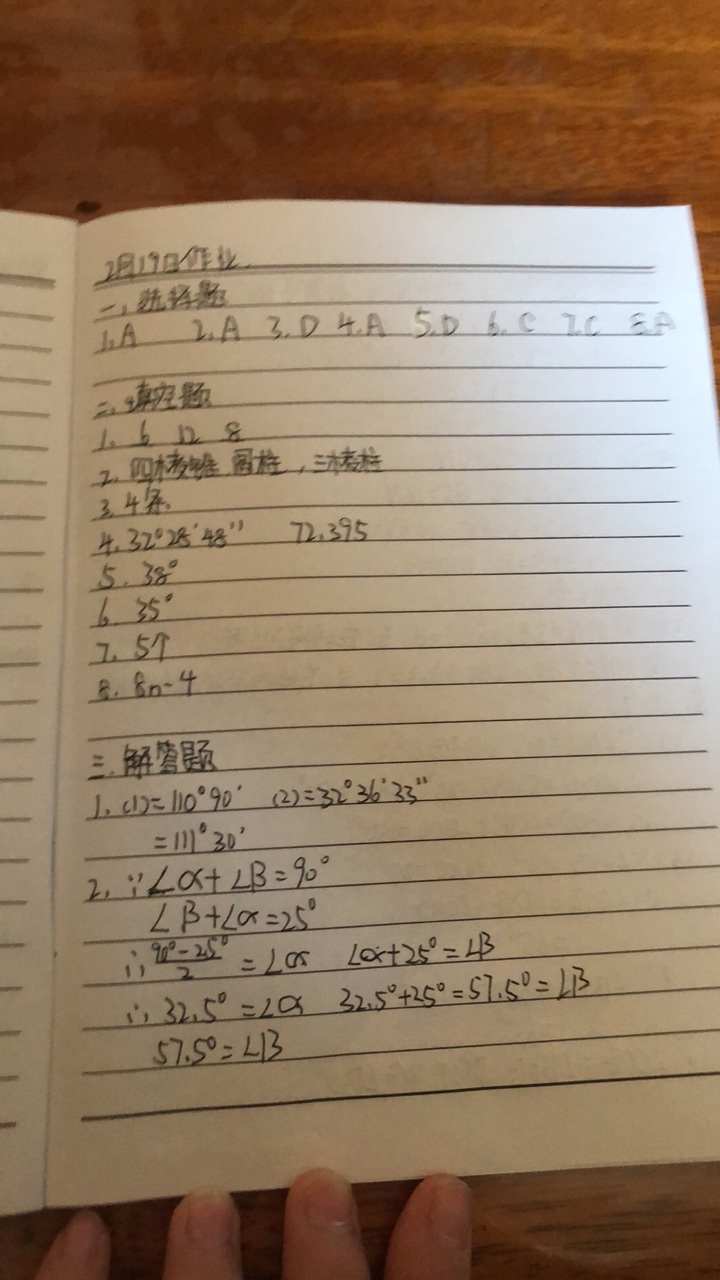 2月19日作业
一、选择题
1.A 2.A 3.D 4.A 5.D 6.C 7.C 8.A
二、填空题
1. 6 12 8
2. 四棱锥 圆柱，三棱柱
3. 4条
4. 32°28′48″ 72.395
5. 38°
6. 35°
7. 5个
8. 8n-4
三.解答题
1. (1)=110°90′ (2)=32°36′33″
=111°30′
2. ∵∠α+∠β=90°
∠β+∠α=25°
∴ (90°-25°)/2 =∠α ∠α+25°=∠β
∴ 32.5°=∠α 32.5°+25°=57.5°=∠β
57.5°=∠β